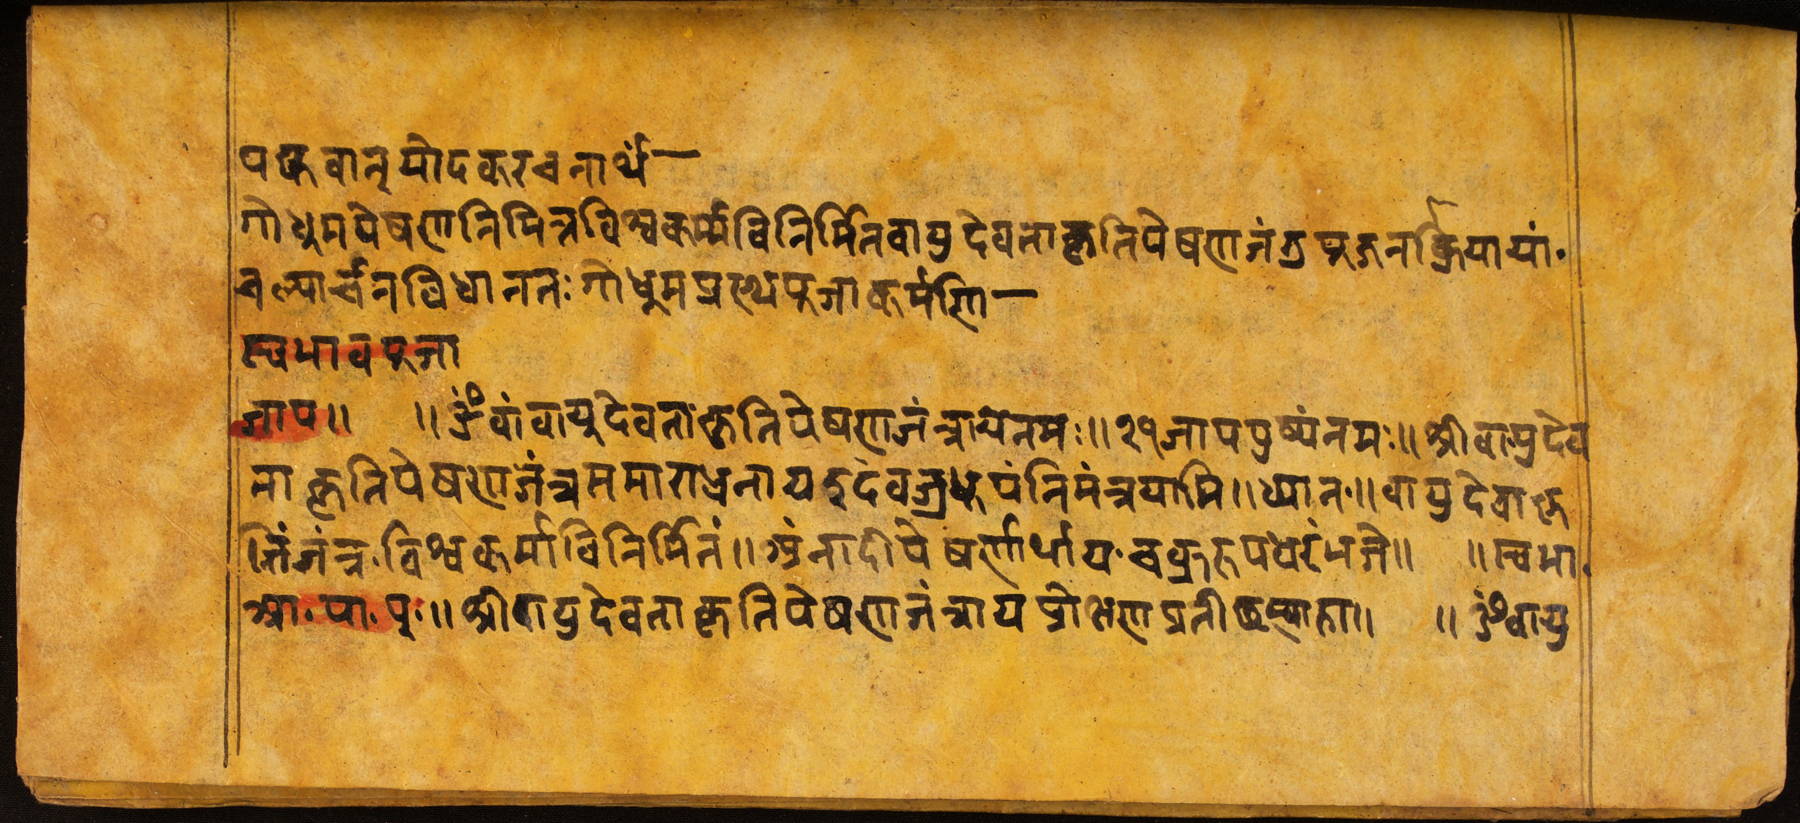 पक्कवान्नयोदकरचनार्थं—
गोधुमपेषणनिमित्रविश्वकर्म्मविनिर्मितवायुदेवताकृतिपेषणजंतुपुजनक्रियायां॰
वल्यार्चनविधाननतः गोधुमप्रस्थपुजाकर्मणि—
स्वधावपुजा
जाप॥ ॥ ॐ वां वायुदेवतांकृतिपेषणजंन्त्रायेनमः॥ २१ जापपुष्पंनमः॥ श्रीवायुदेव
ताकृतिपेषणजंन्त्रसमाराध्रनायदुदेवत्रधुपंनिमंत्रयामि॥ ध्यान॰॥ वायुदेवाकृ
तिंजंन्त्र॰विश्वकर्माविनिर्मितं॥ अंनादीपेषर्णार्थाय॰चक्ररुपधरंभजे॥ ॥ स्वधा॰
आ॰ पा॰ पु॰॥ श्रीवायुदेवताकृतिपेषणजंन्त्रायप्रोक्षणप्रतीछस्वाहा॥ ॥ ॐ वायु